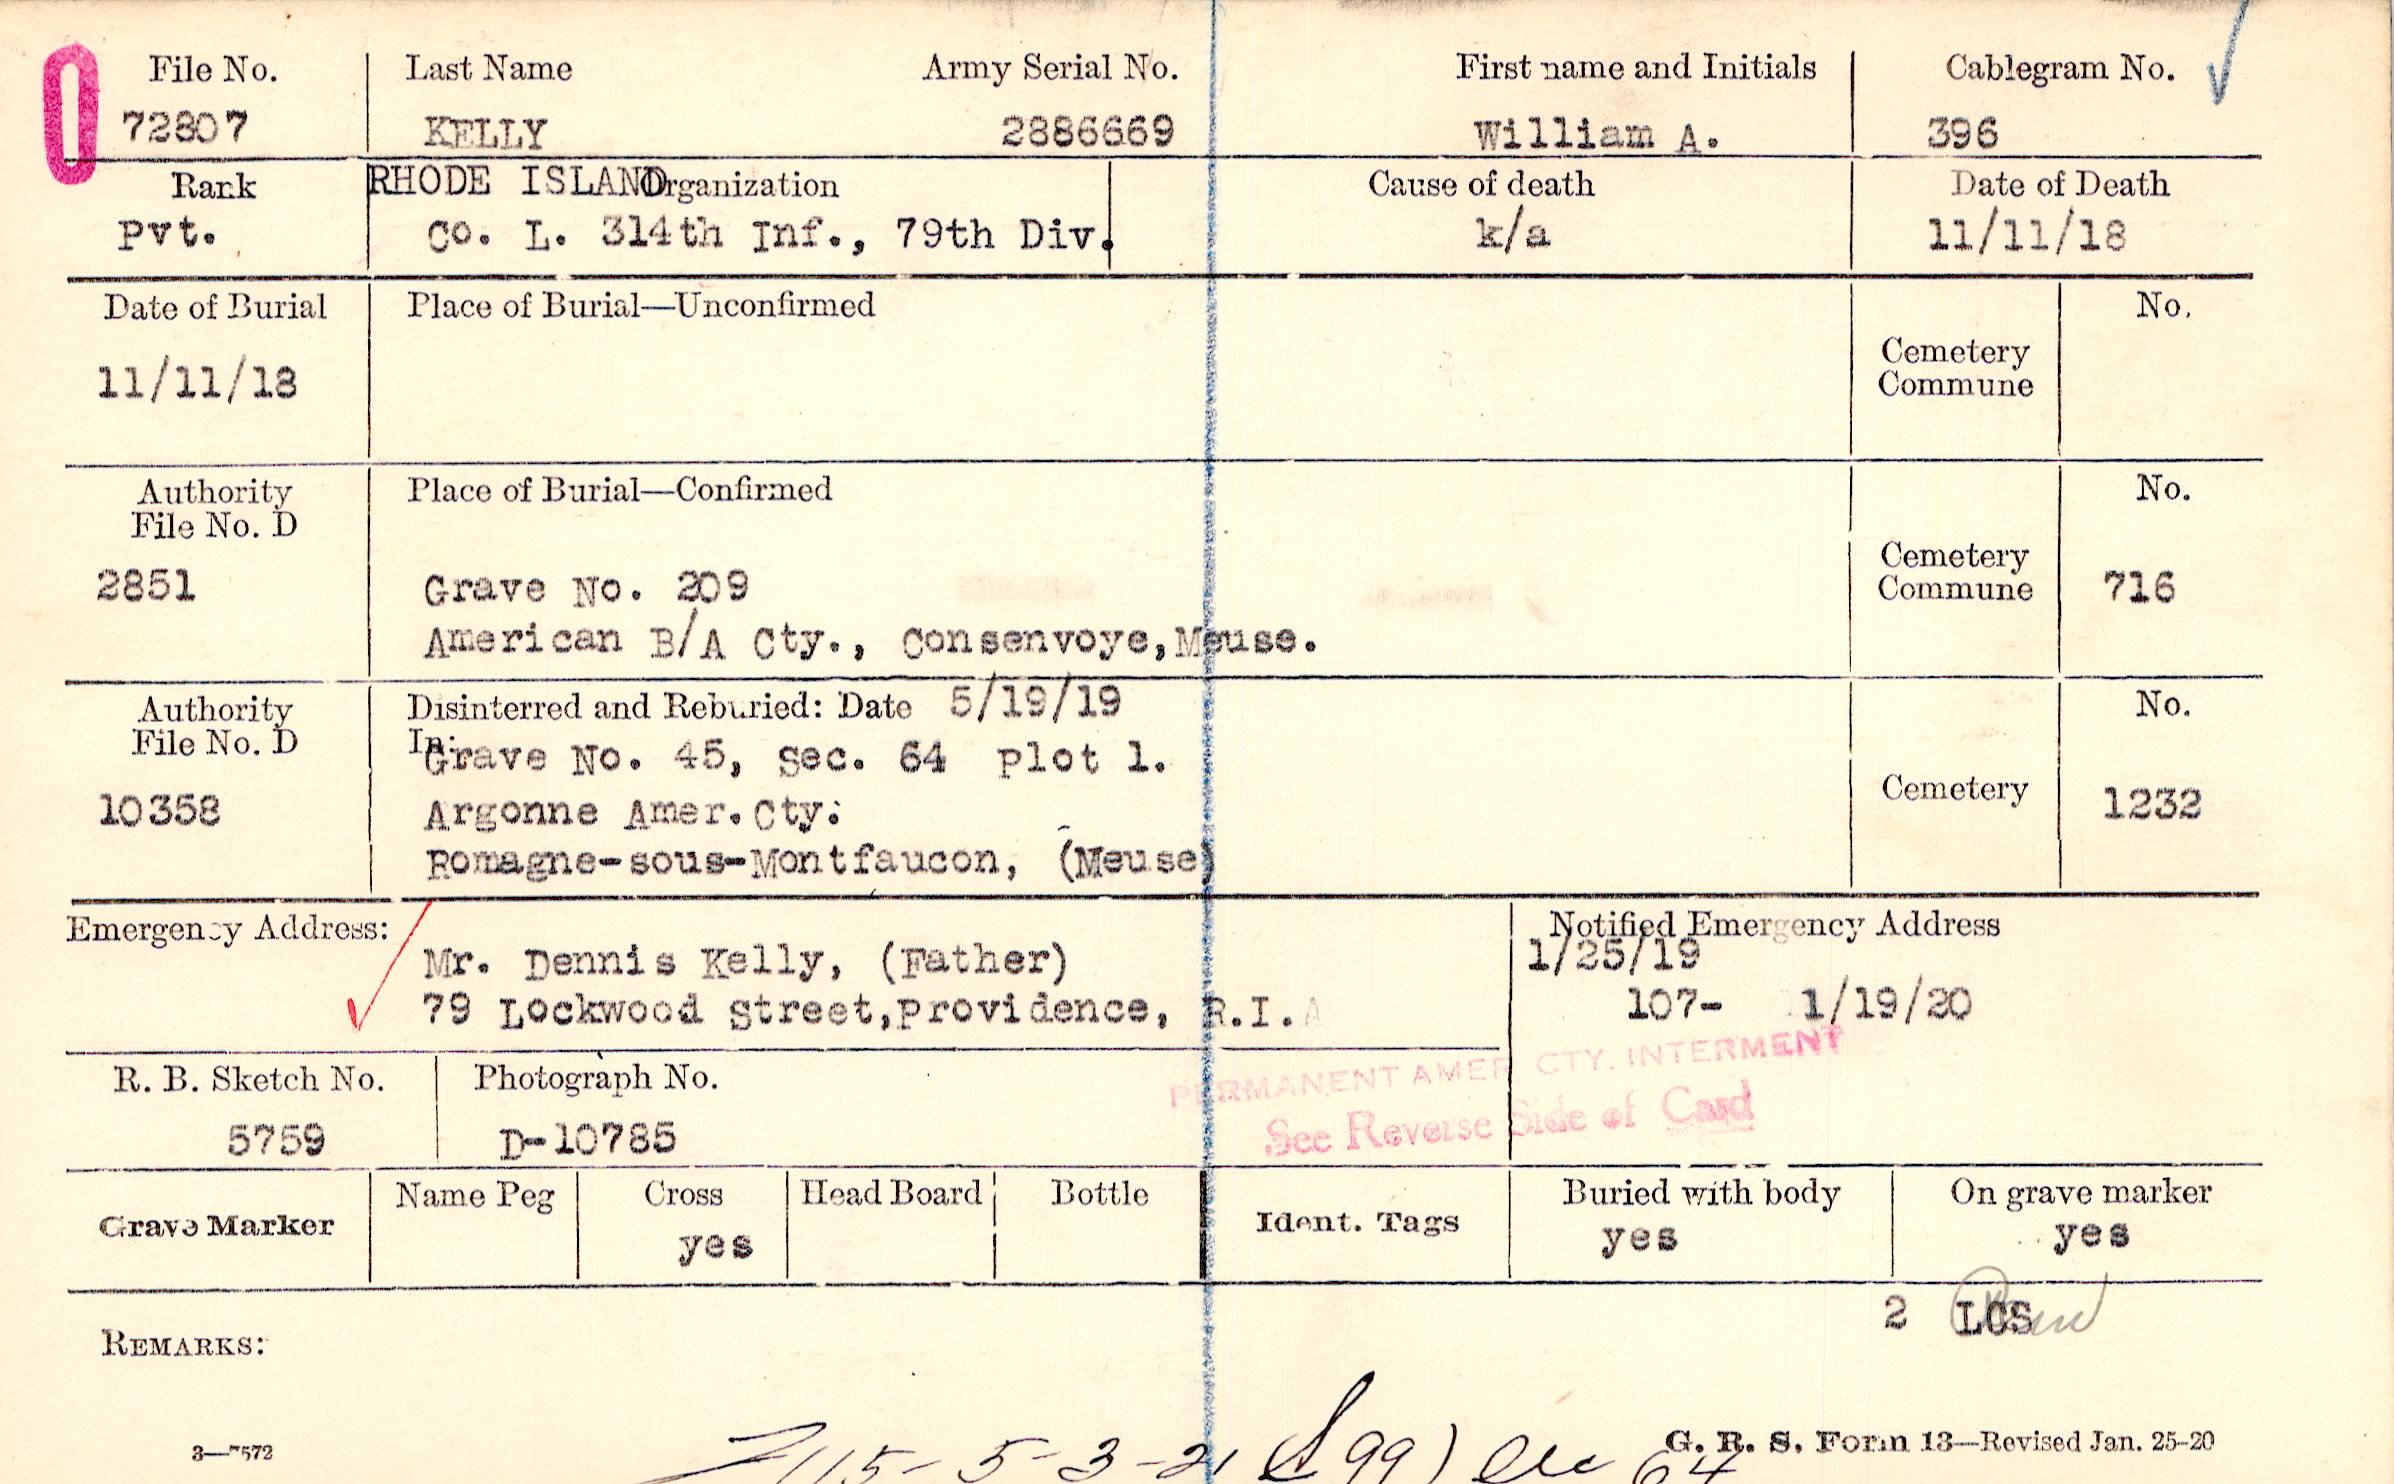 File No. Last Name Army Serial No. First name and Initials Cablegram No.
72807 KELLY 2886669 William A. 396
Rank RHODE ISLAND Organization Cause of death Date of Death
Pvt. Co. L. 314th Inf., 79th Div. k/a 11/11/18
Date of Burial Place of Burial—Unconfirmed No.
Cemetery
Commune
11/11/18
Authority Place of Burial—Confirmed No.
File No. D
Cemetery
2851 Grave No. 209 Commune 716
American B/A Cty., Consenvoye,Meuse.
Authority Disinterred and Reburied: Date 5/19/19 No.
File No. D In:
Grave No. 45, Sec. 64 Plot 1.
10358 Argonne Amer. Cty: Cemetery 1232
Romagne-sous-Montfaucon, (Meuse)
Emergency Address: Notified Emergency Address
Mr. Dennis Kelly, (Father) 1/25/19
79 Lockwood Street,Providence, R.I. 107- 1/19/20
PERMANENT AMER CTY. INTERMENT
R. B. Sketch No. Photograph No.
See Reverse Side of Card
5759 D-10785
Grave Marker Name Peg Cross Head Board Bottle Ident. Tags Buried with body On grave marker
yes yes yes
2 LCS
REMARKS:
115-5-3-21 99)
3—7572 G. R. S. Form 13—Revised Jan. 25-20